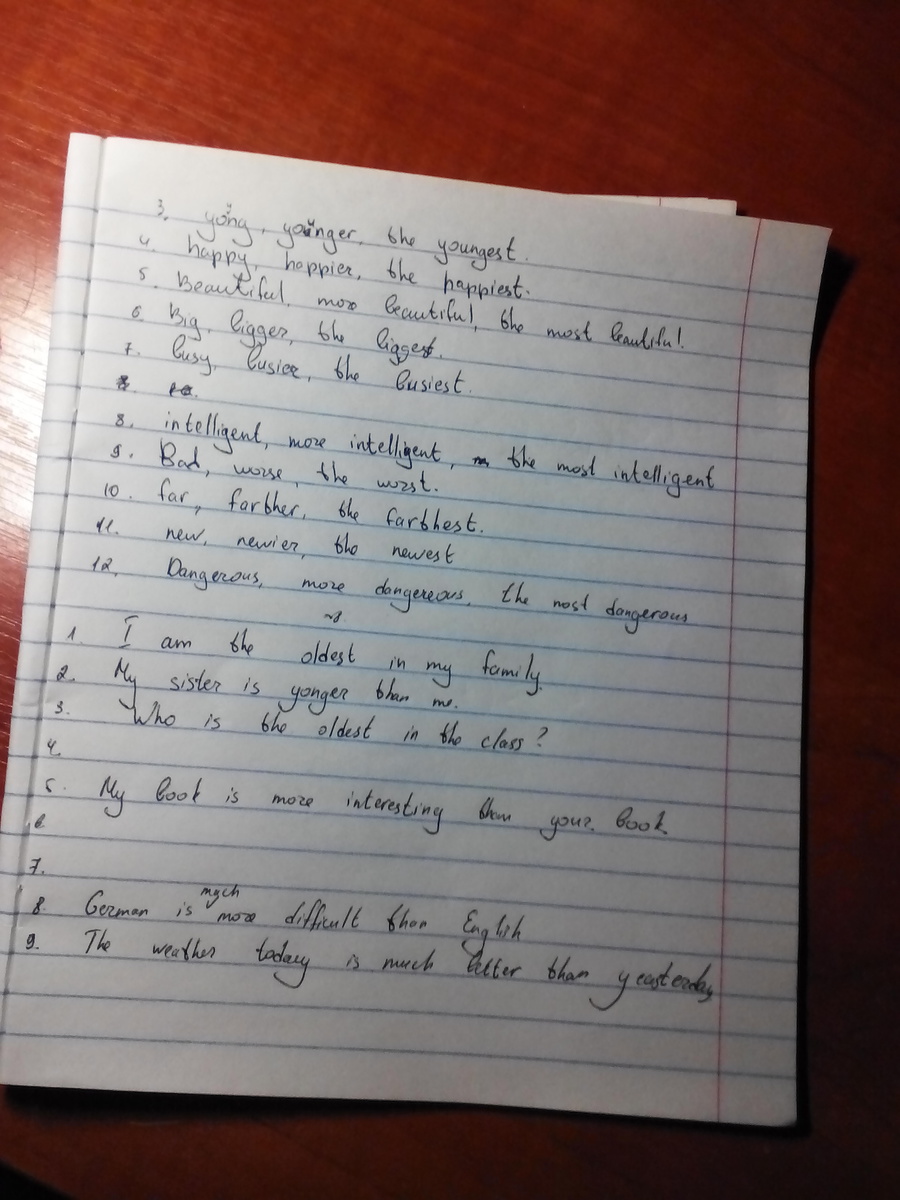 3. yong, younger, the youngest.
4. happy, happier, the happiest.
5. Beautiful, more beautiful, the most beautiful.
6. Big, bigger, the biggest.
7. busy, busier, the busiest.
8.
8. intelligent, more intelligent, the most intelligent
9. Bad, worse, the worst.
10. far, farther, the farthest.
11. new, newier, the newest
12. Dangerous, more dangereous, the most dangerous
1. I am the oldest in my family.
2. My sister is yonger than me.
3. Who is the oldest in the class?
4.
5. My book is more interesting than your book
6.
7.
mych
8. German is more difficult than English
9. The weather today is much better than yeasterday